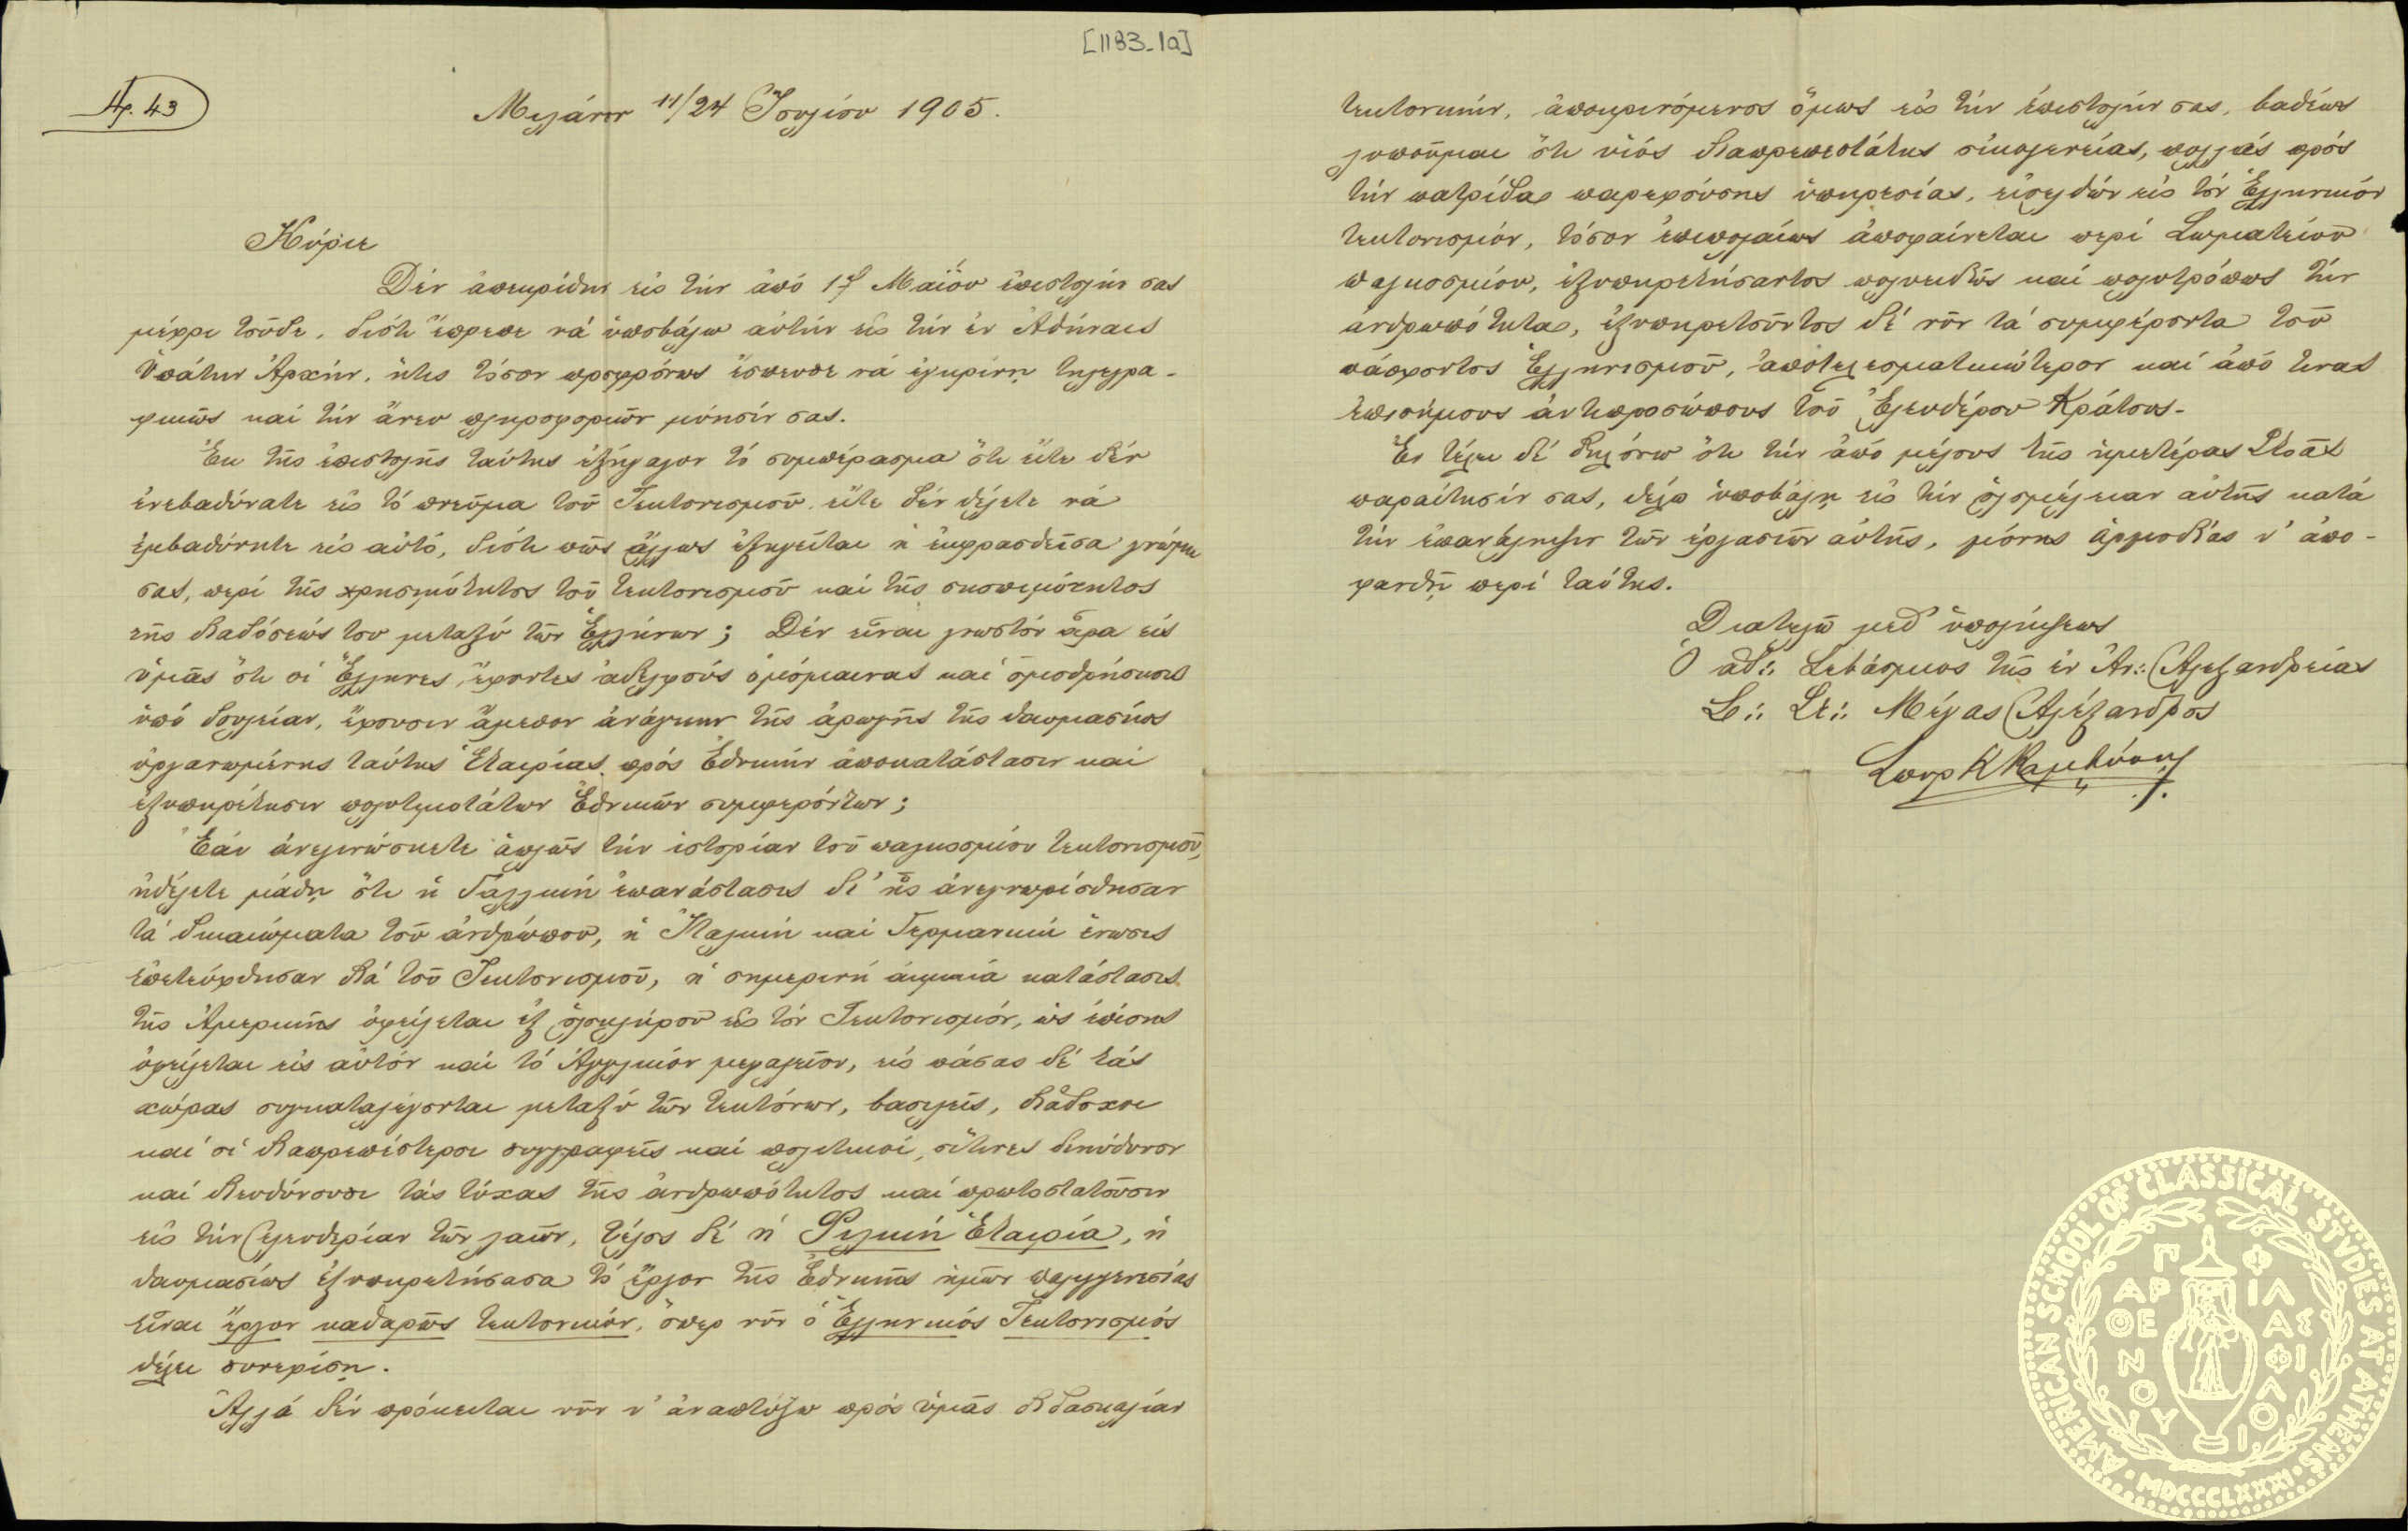 [1183_1a]
Ἀρ. 43
Μιλάνον 11/24 Ἰουλίου 1905.
Κύριε
Δέν ἀπεκρίθην εἰς τήν ἀπό 17 Μαΐου ἐπιστολήν σας
μέχρι τοῦδε, διότι ἔπρεπε νά ὑποβάλω αὐτήν εἰς τήν ἐν Ἀθήναις
Ὑπάτην Ἀρχήν, ἥτις τόσον προφρόνως ἔσπευσε νά ἐγκρίνῃ τηλεγρα-
φικῶς καί τήν ἄνευ πληροφοριῶν μύησίν σας.
Ἐκ τῆς ἐπιστολῆς ταύτης ἐξήγαγον τό συμπέρασμα ὅτι εἴτε δέν
ἐνεβαθύνατε εἰς τό πνεῦμα τοῦ Τεκτονισμοῦ εἴτε δέν θέλετε νά
ἐμβαθύνητε εἰς αὐτό, διότι πῶς ἄλλως ἐξηγεῖται ἡ ἐκφρασθεῖσα γνώμη
σας, περί τῆς χρησιμότητος τοῦ τεκτονισμοῦ καί τῆς σκοπιμότητος
τῆς διαδόσεώς του μεταξύ τῶν Ἑλλήνων; Δέν εἶναι γνωστόν ἆρα εἰς
ὑμᾶς ὅτι οἱ Ἕλληνες, ἔχοντες ἀδελφούς ὁμόαιμας καί ὁμοθρήσκους
ὑπό δουλείαν, ἔχουσιν ἄμεσον ἀνάγκην τῆς ἀρωγῆς τῆς θαυμασίως
ὠργανωμένης ταύτης Ἑταιρίας πρός Ἐθνικήν ἀποκατάστασιν καί
ἐξυπηρέτησιν πολυτιμοτάτων Ἐθνικῶν συμφερόντων;
Ἐάν ἀνεγινώσκετε ἁπλῶς τήν ἱστορίαν τοῦ παγκοσμίου τεκτονισμοῦ,
ἠθέλετε μάθῃ ὅτι ἡ Γαλλική ἐπανάστασις δι' ἧς ἀνεγνωρίσθησαν
τά δικαιώματα τοῦ ἀνθρώπου, ἡ Ἰταλική καί Γερμανική ἕνωσις
ἐπετεύχθησαν διά τοῦ Τεκτονισμοῦ, ἡ σημερινή ἀκμαία κατάστασις
τῆς Ἀμερικῆς ὀφείλεται ἐξ ὁλοκλήρου εἰς τόν Τεκτονισμόν, ὡς ἐπίσης
ὀφείλεται εἰς αὐτόν καί τό Ἀγγλικόν μεγαλεῖον, εἰς πάσας δέ τάς
χώρας συγκαταλέγονται μεταξύ τῶν τεκτόνων, βασιλεῖς, διάδοχοι
καί οἱ διαπρεπέστεροι συγγραφεῖς καί πολιτικοί, οἵτινες διηύθυνον
καί διευθύνουσι τάς τύχας τῆς ἀνθρωπότητος καί πρωτοστατοῦσιν
εἰς τήν ἐλευθερίαν τῶν λαῶν, τέλος δέ ἡ Φιλική Ἑταιρία, ἡ
θαυμασίως ἐξυπηρετήσασα τό ἔργον τῆς Ἐθνικῆς ἡμῶν παλιγγενεσίας
εἶναι ἔργον καθαρῶς τεκτονικόν, ὅπερ νῦν ὁ Ἑλληνικός Τεκτονισμός
θέλει συνεχίσῃ.
Ἀλλά δέν πρόκειται νῦν ν' ἀναπτύξω πρός ὑμᾶς διδασκαλίαν
τεκτονικήν, ἀποκρινόμενος ὅμως εἰς τήν ἐπιστολήν σας, βαθέως
λυποῦμαι ὅτι υἱός διαπρεπεστάτης οἰκογενείας, πολλάς πρός
τήν πατρίδα παρεχούσης ὑπηρεσίας, εἰσελθών εἰς τόν Ἑλληνικόν
τεκτονισμόν, τόσον ἐπιπολαίως ἀποφαίνεται περί Σωματείου
παγκοσμίου, ἐξυπηρετήσαντος πολυειδῶς καί πολυτρόπως τήν
ἀνθρωπότητα, ἐξυπηρετοῦντος δέ νῦν τά συμφέροντα τοῦ
πάσχοντος Ἑλληνισμοῦ, ἀποτελεσματικώτερον καί ἀπό τινας
ἐπισήμους ἀντιπροσώπους τοῦ Ἐλευθέρου Κράτους.
Ἐν τέλει δέ δηλόνω ὅτι τήν ἀπό μέλους τῆς ἡμετέρας Στοᾶς
παραίτησίν σας, θέλω ὑποβάλῃ εἰς τήν ὁλομέλειαν αὐτῆς κατά
τήν ἐπανάληψιν τῶν ἐργασιῶν αὐτῆς, μόνης ἁρμοδίας ν' ἀπο-
φανθῇ περί ταύτης.
Διατελῶ μεθ' ὑπολήψεως
Ὁ ἀδ∴ Σεβάσμιος τῆς ἐν Ἀν∴ Ἀλεξανδρείας
Σ∴ Στ∴ Μέγας Ἀλέξανδρος
Σπυρ Κ
AMERICAN SCHOOL OF CLASSICAL STVDIES AT ATHENS · MDCCCLXXXI ·
ΠΑΡΘΕΝΟΥ ΦΙΛΑΣ ΦΙΛΟΙ